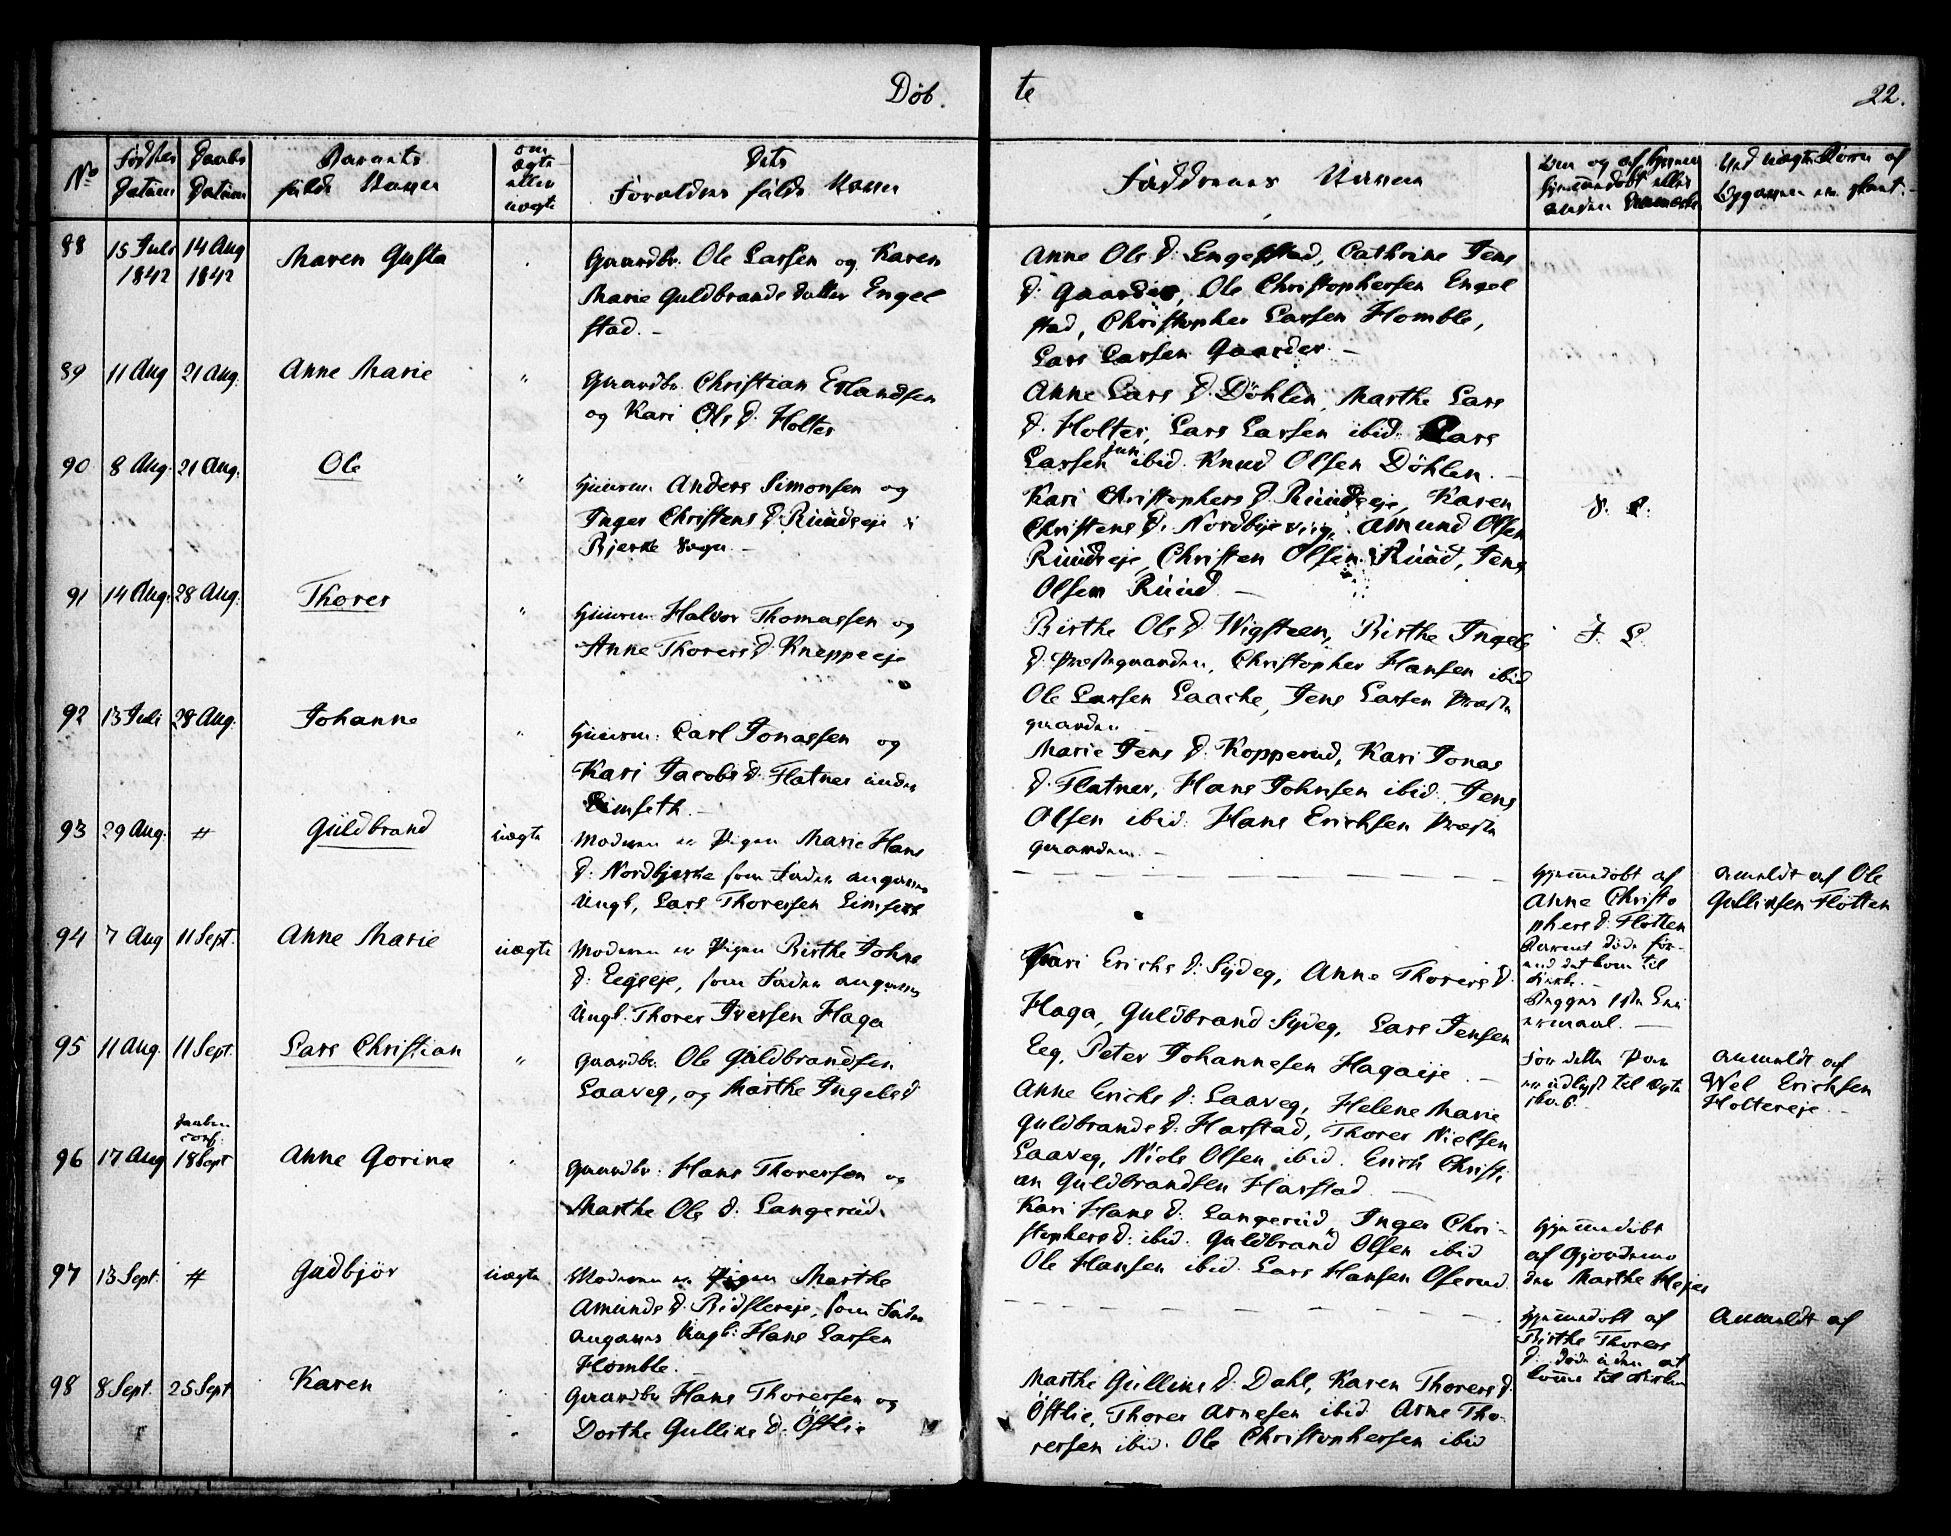 Døb.
te
22.
No
Fødsels Datum
Daabs Datum
Barnets fulde Navn
om ægte eller uægte
Dets Forældres fulde Navn
Faddernes Navne
Ved uægte Børn af
88
15 Juli 1842
14 Aug 1842
Maren Gusta
Gaardbr. Ole Larsen og Karen
Marie Guldbrands datter Engel
stad. -
Anne Ols d. Engelstad, Cathrine Jens
d. Gaarder, Ole Christophersen Engel
stad, Christopher Larsen Homble,
Lars Larsen Gaarder. -
89
11 Aug
21 Aug.
Anne Marie
"
Gaardbr. Christian Erlandsen
og Kari Ols d. Holter
Anne Lars d. Döhlen, Marthe Lars
d. Holter, Lars Larsen ibid. Lars
Larsen jun ibid. Knud Olsen Döhlen. -
90
8 Aug.
21 Aug.
Ole
"
Huusm. Anders Simonsen og
Inger Christens d. Ruudseje i
Bjerke Sogn. -
Kari Christophers d. Ruudseje, Karen
Christens d. Nordbye, Amund Olsen
Ruudseje, Christen Olsen Ruud, Jens
Olsen Ruud -
91
14 Aug.
28 Aug.
Thorer
"
Huusm. Halvor Thomassen og
Anne Thorers d. Kneppeeje
Birthe Ols d. Wigsteen, Birthe Ingels
d. Præstegaarden, Christopher Hansen ibid
Ole Larsen Laache, Jens Larsen Præste
gaarden -
92
13 Juli
28 Aug.
Johanne
"
Huusm. Carl Jonassen og
Kari Jacobs d. Flatner under
Limseth. -
Marie Jens d. Kopperud, Kari Jonas
d. Flatner, Hans Johnsen ibid. Jens
Olsen ibid. Hans Erichsen Præste
gaarden. -
93
29 Aug.
#
Guldbrand
uægte
Moderen er Pigen Marie Hans
d. Nordbjerke som Fader angives
Ungk. Lars Thorersen Limseth
hjemmedøbt af
Anne Christo
phers d. Flotten
Barnet døde før-
end det kom til
Kirke. -
Anmeldt af Ole
Gulliksen Flotten
94
7 Aug
11 Sept.
Anne Marie
uægte
Moderen er Pigen Birthe Johns
d. Eegseje, som Fader angives
Ungk. Thorer Iversen Haga
Kari Erichs d. Sydeg, Anne Thorers d.
Haga, Guldbrand Sydeg, Lars Jensen
Eeg, Peter Johannesen Hagaeje. -
Begges 1ste Leie
ermaal. -
For dette Par
er udlyst til ægte
skab
Anmeldt af
Wel Erichsen
Holtereje. -
95
11 Aug.
11 Sept.
Lars Christian
"
Gaardbr. Ole Guldbrandsen
Laaveg, og Marthe Ingebs d
Anne Erichs d. Laaveg, Helene Marie
Guldbrands d. Harstad, Thorer Nielsen
Laaveg, Niels Olsen ibid. Erich Christi
an Guldbrandsen Harstad. -
96
17 Aug
Daaben conf. 18 Sept
Anne Gorine
"
Gaardbr. Hans Thorersen og
Marthe Ols d. Langerud.
Kari Hans d. Langerud, Inger Chri-
stophers d. ibid. Guldbrand Olsen ibid
Ole Hansen ibid. Lars Hansen Oserud.
hjemmedøbt
af Gjordemo
der Marthe Hejer
97
13 Sept.
#
Gudbjör
uægte
Moderen er Pigen Marthe
Amunds d. Ridslereje, som Fader
angives Ungk. Hans Larsen
Homble.
hjemmedøbt af
Birthe Thorers
d. døde uden at
komme til Kirken
Anmeldt af
98
8 Sept.
25 Sept
Karen
"
Gaardbr Hans Thorersen og
Dorthe Gulliks d. Östlie
Marthe Gulliks d. Dahl, Karen Thorers d.
Östlie, Thorer Arnesen ibid. Arne Tho-
rersen ibid. Ole Christophersen ibid